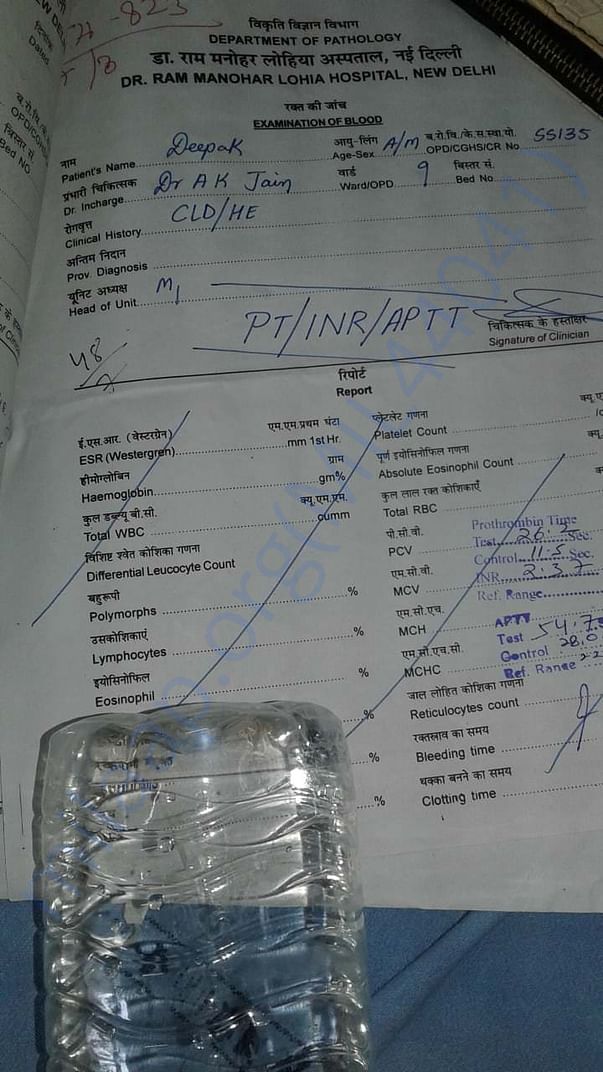 -823
विकृति विज्ञान विभाग
DEPARTMENT OF PATHOLOGY
डा. राम मनोहर लोहिया अस्पताल, नई दिल्ली
DR. RAM MANOHAR LOHIA HOSPITAL, NEW DELHI
रक्त की जांच
EXAMINATION OF BLOOD
नाम
Patient's Name Deepak
आयु-लिंग
Age-Sex A/M
OPD/CGHS/CR No. SS135
प्रभारी चिकित्सक
Dr. Incharge Dr A K Jain
वार्ड
Ward/OPD 9
बिस्तर सं.
Bed No
रोगवृत्त
Clinical History CLD/HE
अन्तिम निदान
Prov. Diagnosis
यूनिट अध्यक्ष
Head of Unit M1
PT/INR/APTT
चिकित्सक के हस्ताक्षर
Signature of Clinician
48
रिपोर्ट
Report
ई.एस.आर. (वेस्टरग्रेन) एम.एम.प्रथम घंटा
ESR (Westergren) mm 1st Hr.
हीमोग्लोबिन ग्राम
Haemoglobin gm%
कुल डब्ल्यू बी.सी. क्यू.एम.एम.
Total WBC cumm
विशिष्ट श्वेत कोशिका गणना
Differential Leucocyte Count
बहुरूपी
Polymorphs %
उसकोशिकाएं
Lymphocytes %
इयोसिनोफिल
Eosinophil %
%
%
%
प्लेटलेट गणना
Platelet Count
पूर्ण इयोसिनोफिल गणना
Absolute Eosinophil Count
कुल लाल रक्त कोशिकाएँ
Total RBC
पी.सी.वी.
PCV
एम.सी.वी.
MCV
एम.सी.एच.
MCH
एम.सी.एच.सी.
MCHC
Prothrombin Time
Test 26.3 Sec.
Control 11.5 Sec.
INR 2.37
Ref. Range
APTT
Test 54.7
Control 28.0
Ref. Range 22
जाल लोहित कोशिका गणना
Reticulocytes count
रक्तस्राव का समय
Bleeding time
थक्का बनने का समय
Clotting time